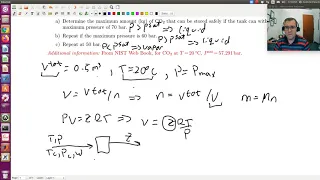 a) Determine the maximum amount (kg) of CO₂ that can be stored safely if the tank can with
maximum pressure of 70 bar. P>Psat => liquid
b) Repeat if the maximum pressure is 60 bar. P>Psat => liquid
c) Repeat at 50 bar P<Psat => vapor
Additional information: From NIST Web Book, for CO₂ at T = 20°C, Psat = 57.291 bar.
V^tot = 0.5 m³, T=20°C, P=Pmax
V = V^tot/n => n = V^tot/V m = Mn
PV = ZRT => V = ZRT/P
T,P
Tc,Pc,W Z